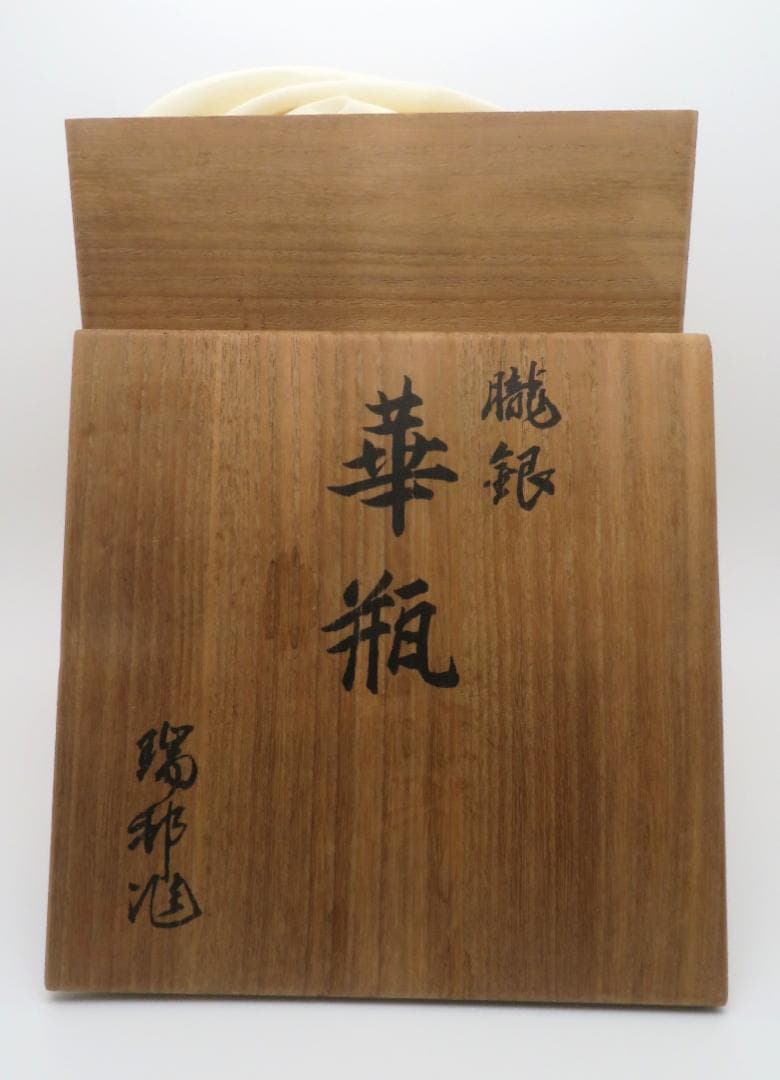 朧銀
華瓶
瑞邦造